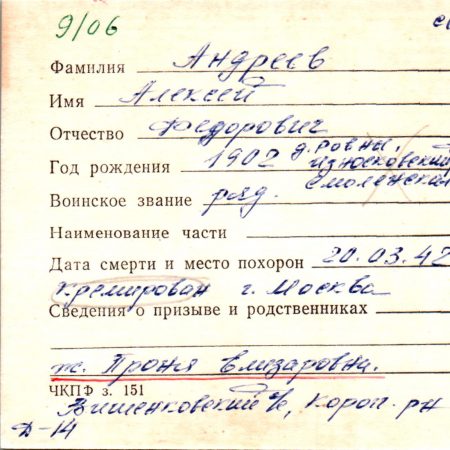 9/06
Фамилия Андреев
Имя Алексей
Отчество Федорович
Год рождения 1902 д. Ровны,
Износковский
Смоленская
Воинское звание ряд.
Наименование части
Дата смерти и место похорон 20.03.42
Кремирован г. Москва
Сведения о призыве и родственниках
ж. Проня Елизаровна.
ЧКПФ з. 151
Вишенковский с/с, Короп. рн
Д-14